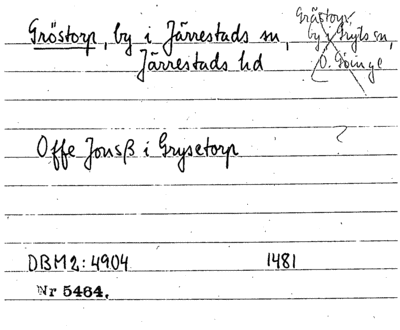 Gröstorp, by i Järrestads sn,
Järrestads hd
Grästorp
by i Gryts sn,
Ö. Göinge
?
Offe Jonsß i Grysetorp
DBM2:4904 1481
Nr 5464.